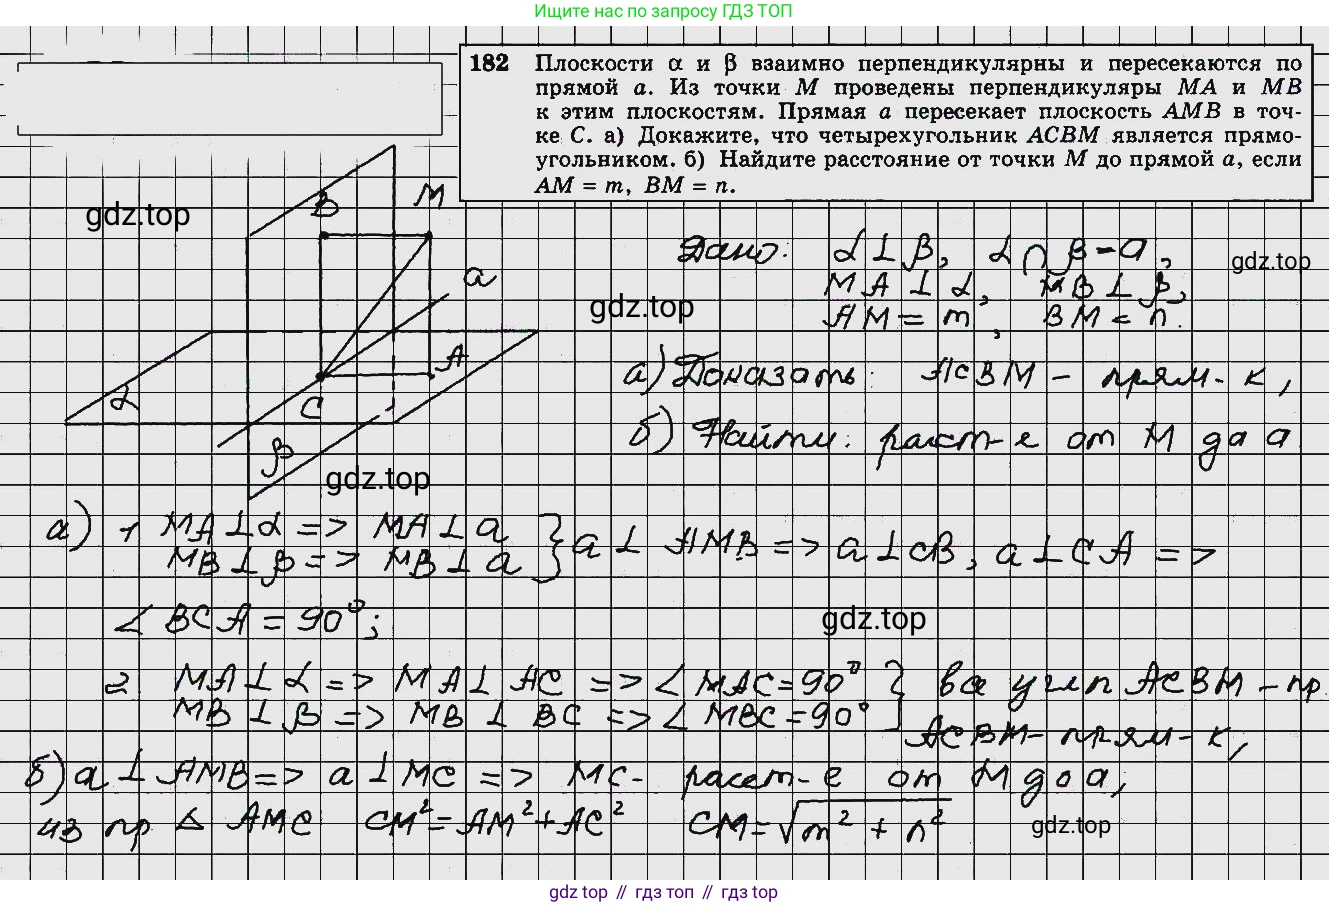 Ищите нас по запросу ГДЗ ТОП
182 Плоскости α и β взаимно перпендикулярны и пересекаются по
прямой a. Из точки M проведены перпендикуляры MA и MB
к этим плоскостям. Прямая a пересекает плоскость AMB в точ-
ке C. а) Докажите, что четырехугольник ACBM является прямо-
угольником. б) Найдите расстояние от точки M до прямой a, если
AM = m, BM = n.
gdz.top
B
M
a
A
α
C
β
gdz.top
Дано: α ⊥ β, α ∩ β = a,
gdz.top
MA ⊥ α, MB ⊥ β,
gdz.top
AM = m, BM = n.
а) Доказать: ACBM – прям-к,
б) Найти: расст-е от M до a
а) 1 MA ⊥ α => MA ⊥ a
MB ⊥ β => MB ⊥ a } a ⊥ AMB => a ⊥ CB, a ⊥ CA =>
∠ BCA = 90°;
gdz.top
2 MA ⊥ α => MA ⊥ AC => ∠ MAC = 90° } все углы ACBM – пр
MB ⊥ β => MB ⊥ BC => ∠ MBC = 90°
ACBM – прям-к,
б) a ⊥ AMB => a ⊥ MC => MC - расст-е от M до a;
из пр Δ AMC CM² = AM² + AC² CM = √m² + n²
gdz.top
gdz top // гдз топ // gdz top